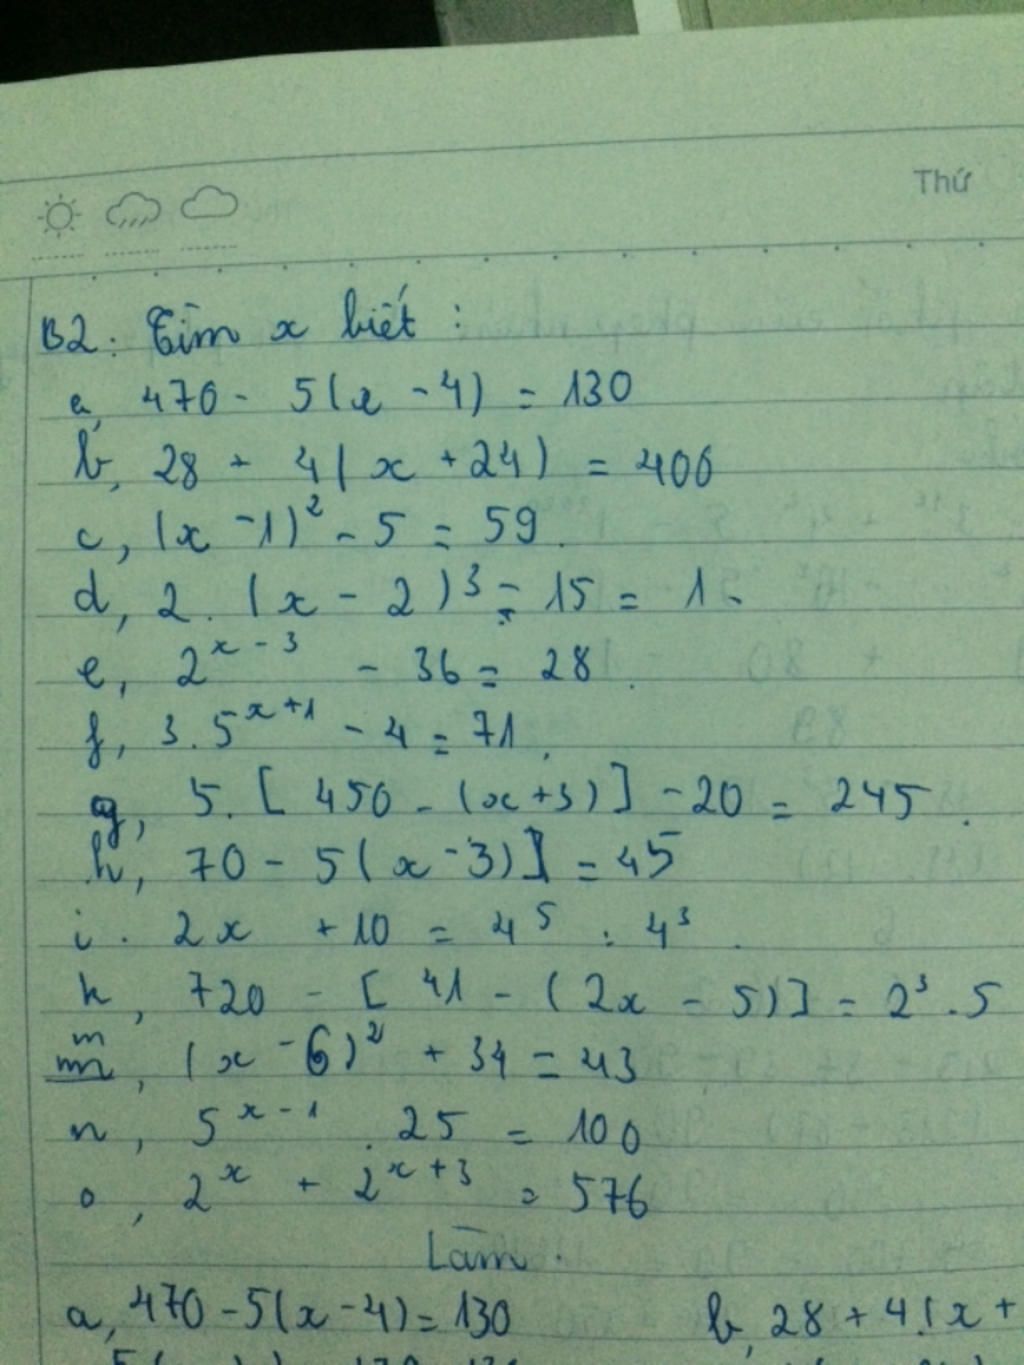 Thứ
B2. Tìm x biết :
a, 470 - 5(x - 4) = 130
b, 28 + 4( x + 24) = 400
c, (x - 1)² - 5 = 59.
d, 2. (x - 2)³ - 15 = 1.
e, 2ˣ⁻³ - 36 = 28.
f, 3.5ˣ⁺¹ - 4 = 71.
g, 5. [ 450 - (x+3)] - 20 = 245.
h, 70 - 5(x - 3)] = 45
i. 2x + 10 = 4⁵ : 4³.
k, 720 - [ 41 - (2x - 5)] = 2³.5
m, (x - 6)² + 34 = 43
n, 5ˣ⁻¹ . 25 = 100
o, 2ˣ + 2ˣ⁺³ = 576
Làm.
a, 470 - 5(x - 4) = 130 b, 28 + 4.(x +